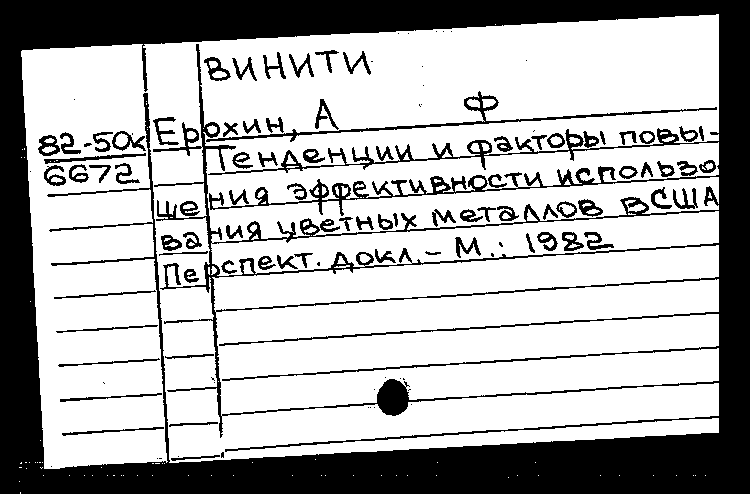 ВИНИТИ
82-50к Ерохин, А Ф
6672 Тенденции и факторы повы-
щения эффективности использо
вания цветных металлов в США
Перспект. докл. - М.: 1982